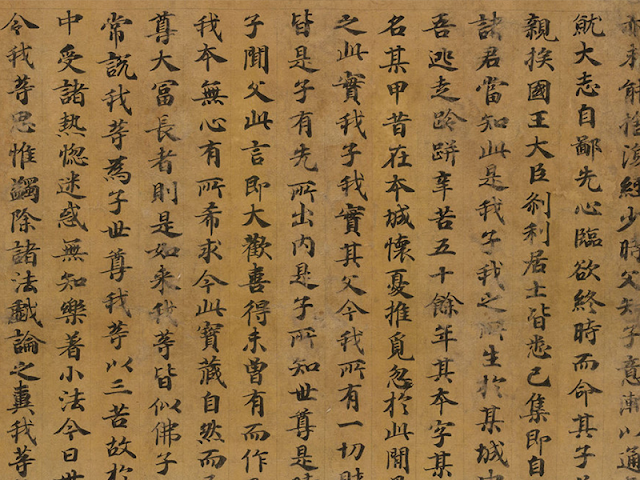 亦未能捨復經少時父知子意漸以通
就大志自鄙先心臨欲終時而命其子
親族國王大臣剎利居士皆悉已集即自
諸君當知此是我子我之所生於某城中
吾逃走跉跰辛苦五十餘年其本字某
名某甲昔在本城懷憂推覓忽於此間
之此實我子我實其父今我所有一切
皆是子有先所出內是子所知世尊是
子聞父此言即大歡喜得未曾有而作
我本無心有所希求今此寶藏自然而
尊大富長者則是如來我等皆似佛子
常說我等為子世尊我等以三苦故於
中受諸熱惱迷惑無知樂著小法今日世
令我等思惟蠲除諸法戲論之糞我等